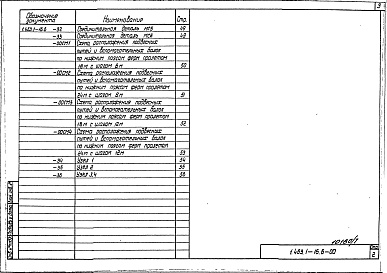 3
Обозначение документа Наименование Стр.
1.463.1-16.6 -32 Соединительная деталь МС8 49
-33 Соединительная деталь МС9 49
-00СМ1 Схема расположения подвесных
путей и вспомогательных балок
по нижним поясам ферм пролетом
18м с шагом 6м 50
-00СМ2 Схема расположения подвесных
путей и вспомогательных балок
по нижним поясам ферм пролетом
24м с шагом 6м 51
-00СМ3 Схема расположения подвесных
путей и вспомогательных балок
по нижним поясам ферм пролетом
18м с шагом 12м 52
-00СМ4 Схема расположения подвесных
путей и вспомогательных балок
по нижним поясам ферм пролетом
24м с шагом 12м 53
-34 Узел 1 54
-35 Узел 2 55
-36 Узел 3,4 56
10180/1
1.463.1-16.6-00
Стр.
2